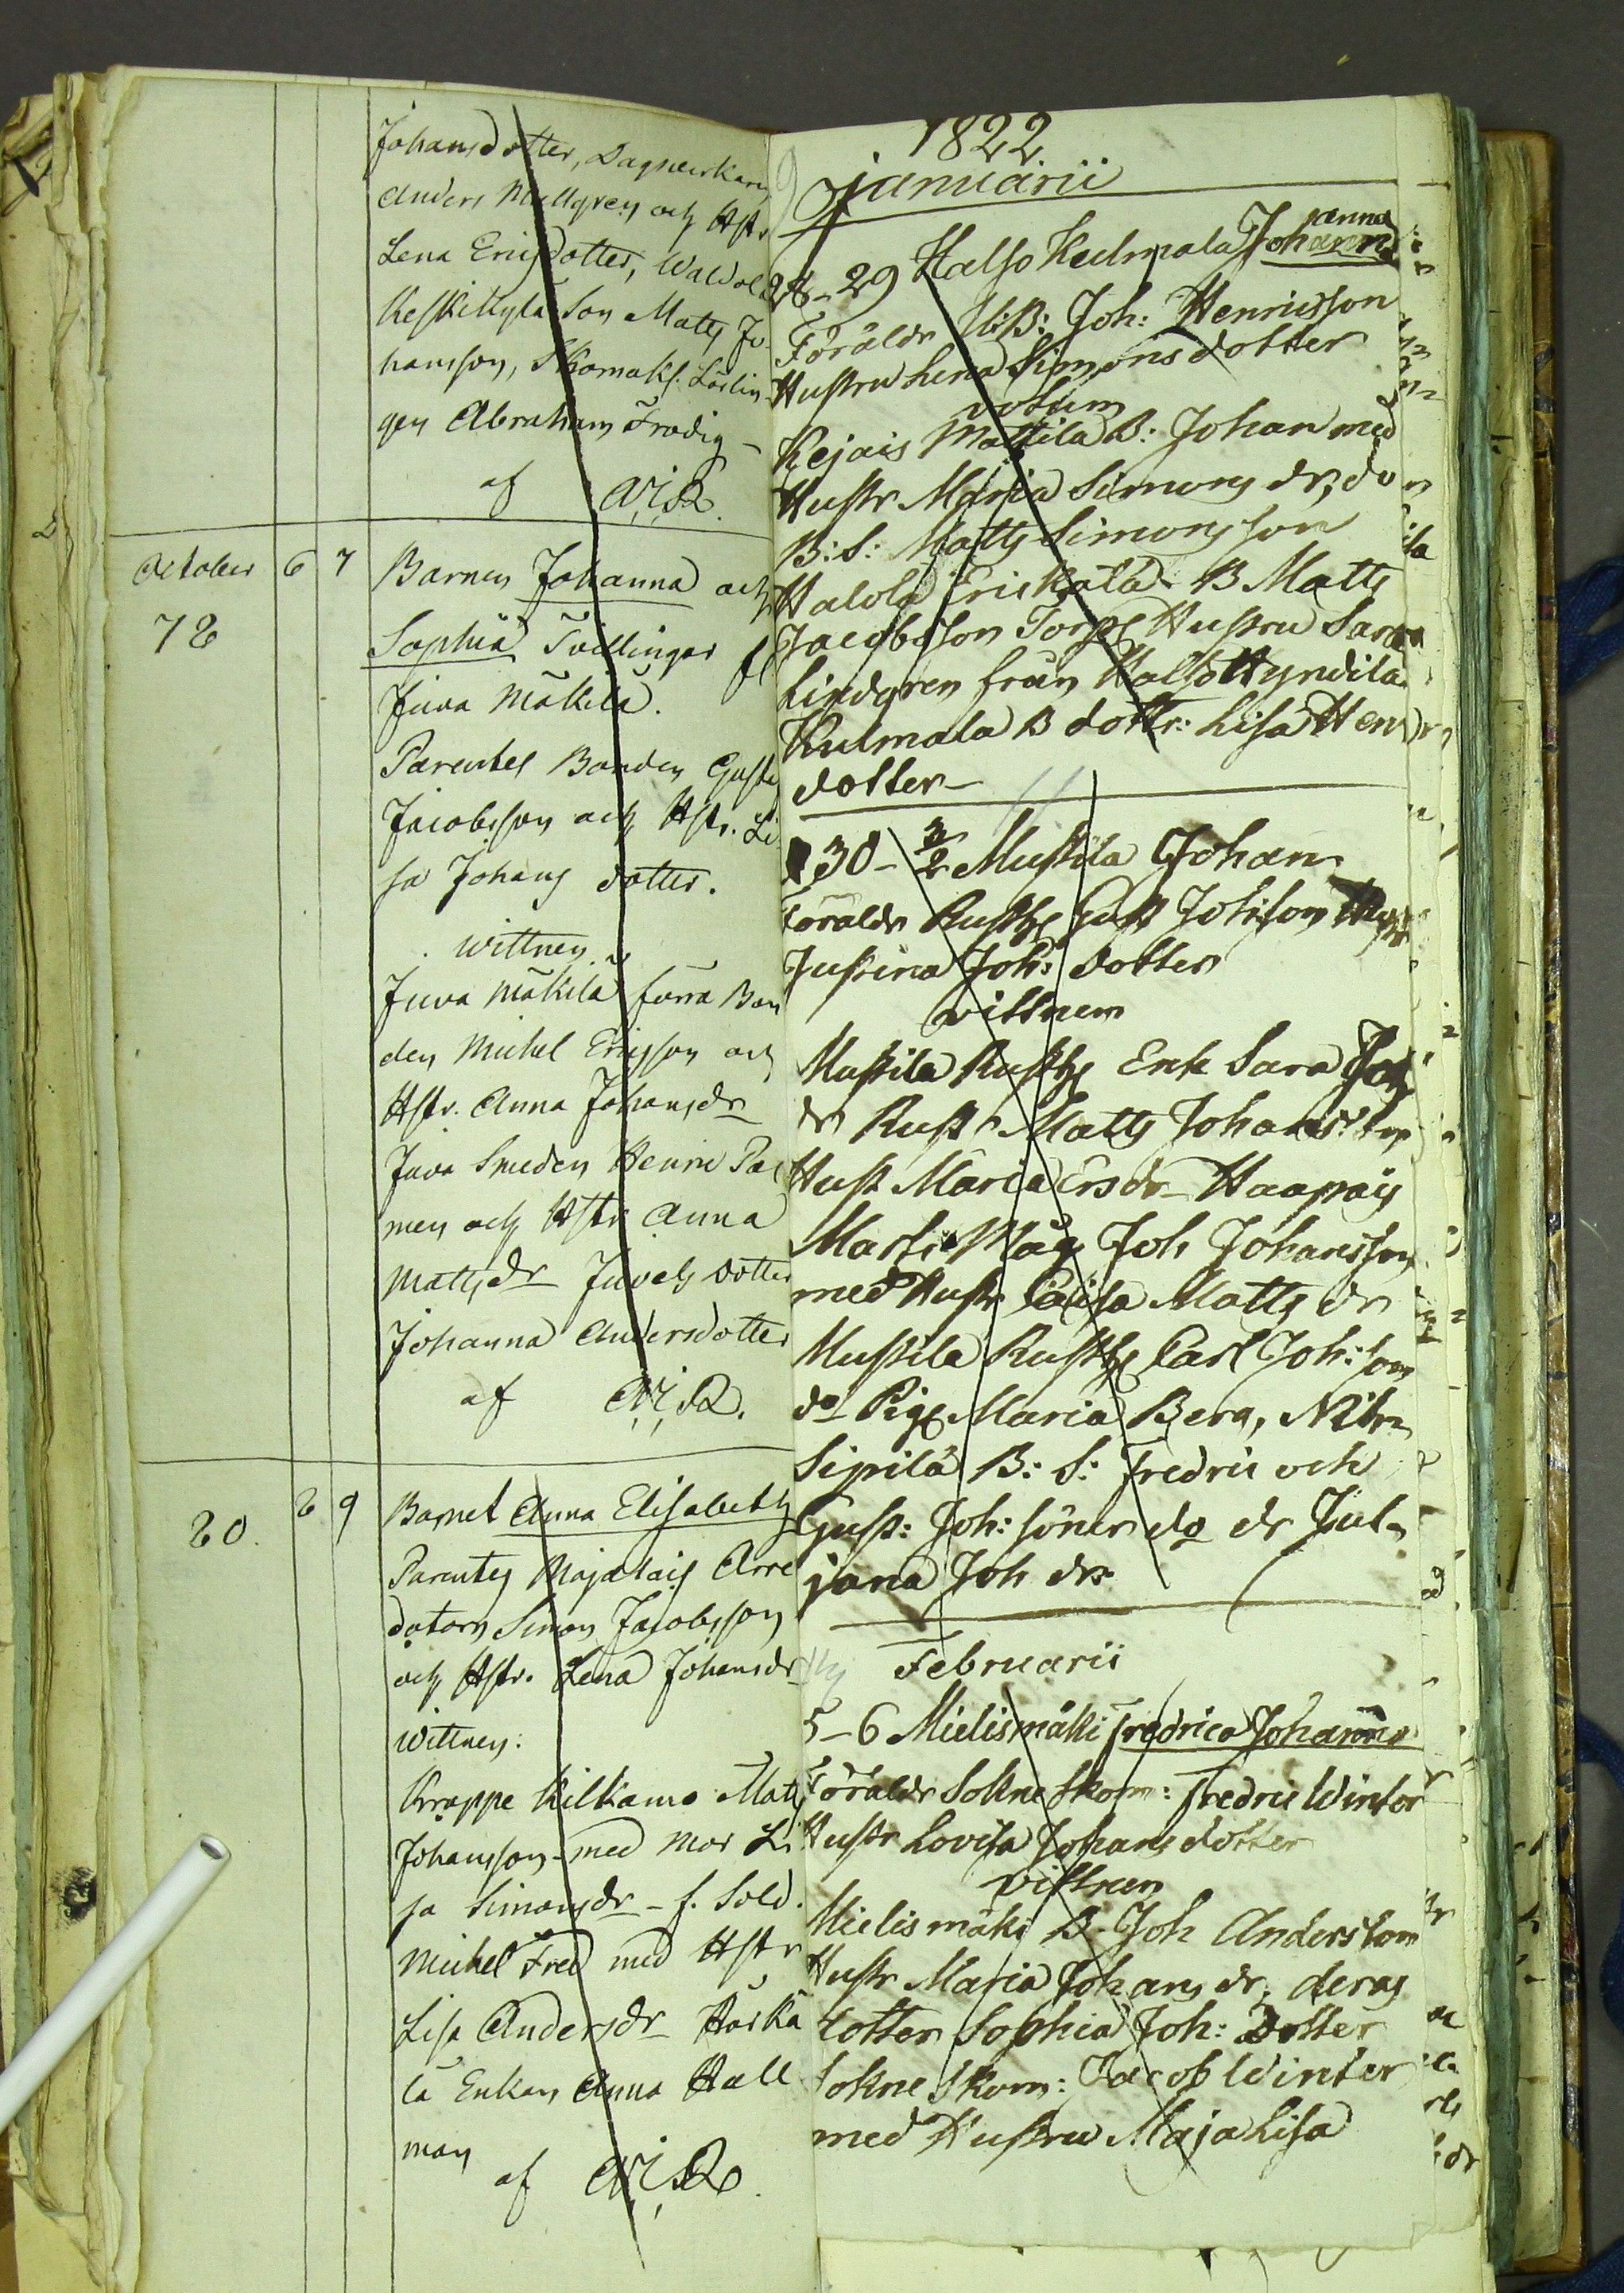 Johansdotter, Dagsverkaren
Anders Mallgren och Hstr
Lena Ericsdotter, Walvola
Keskikylä Son Matts Jo-
hansson, Skomak. Lärlin-
gen Abraham Frodig -
af
October 6 7 Barnen Johanna och
78
Sophia Tvillingar fr
Juva Mäkilä.
Parentes Bonden Gust
Jacobsson och Hstr. Li
sa Johans dotter.
Wittnen
Juva Mäkilä förra Bon
den Michel Ericsson och
Hstr. Anna Johansdr
Juva Smeden Henric Pa
men och Hstr Anna
Mattsdr Juvels dotter
Johanna Andersdotter
af
80. 8 9 Barnet Anna Elisabeth
Parentes Majalais Arre
datorn Simon Jacobsson
och Hstr. Lena Johansdr
Wittnen:
Krappe Kilkama Matts
Johansson med mor Li
sa Simonsdr - f. Sold.
Michel Fred med Hstr
Lisa Andersdr Härkä
lä Enkan Anna Hall
man
af
1822
Januarii
28-29 Halso Kulmala Johanna
Föräldr Joh: Henricsson
Hustru Lena Simons dotter
Kejais Mattila B: Johan med
Hustr Maria Simons dr, do
B: S: Matts Simonsson
Halola Erickala B Matts
Jacobsson Torp Hustru Sara
Lindgren från Halso Hyrvilä
Kulmala B dottr: Lisa Hen
dotter -
30 - 3/2 Mustila Johan
Föräldr Rusth Gust Johsson
Justina Joh: dotter
vittnen
Mustila Rusth Enk Sara Joh
dr Rusth Matts Johansson
Hust Maria Ersdr Haapais
Marti Måg Joh Johansson
med Hustr Caisa Matts dr
Mustila Rusth Carl Joh:son
do Pig Maria Berg,
Sipilä B: S: Fredric och
Gust: Joh: söner do dr Jul-
jana Joh dr
Februarii
5-6 Mielismäki Fredrica Johanna
Föräldr Sokne Skom: Fredric Winter
Hustr Lovisa Johans dotter
vittnen
Mielismäki B. Joh Andersson
Hustr Maria Johans dr, deras
dotter Sophia Joh: Dotter
Sokne Skom: Jacob Winter
med Hustru Maja Lisa